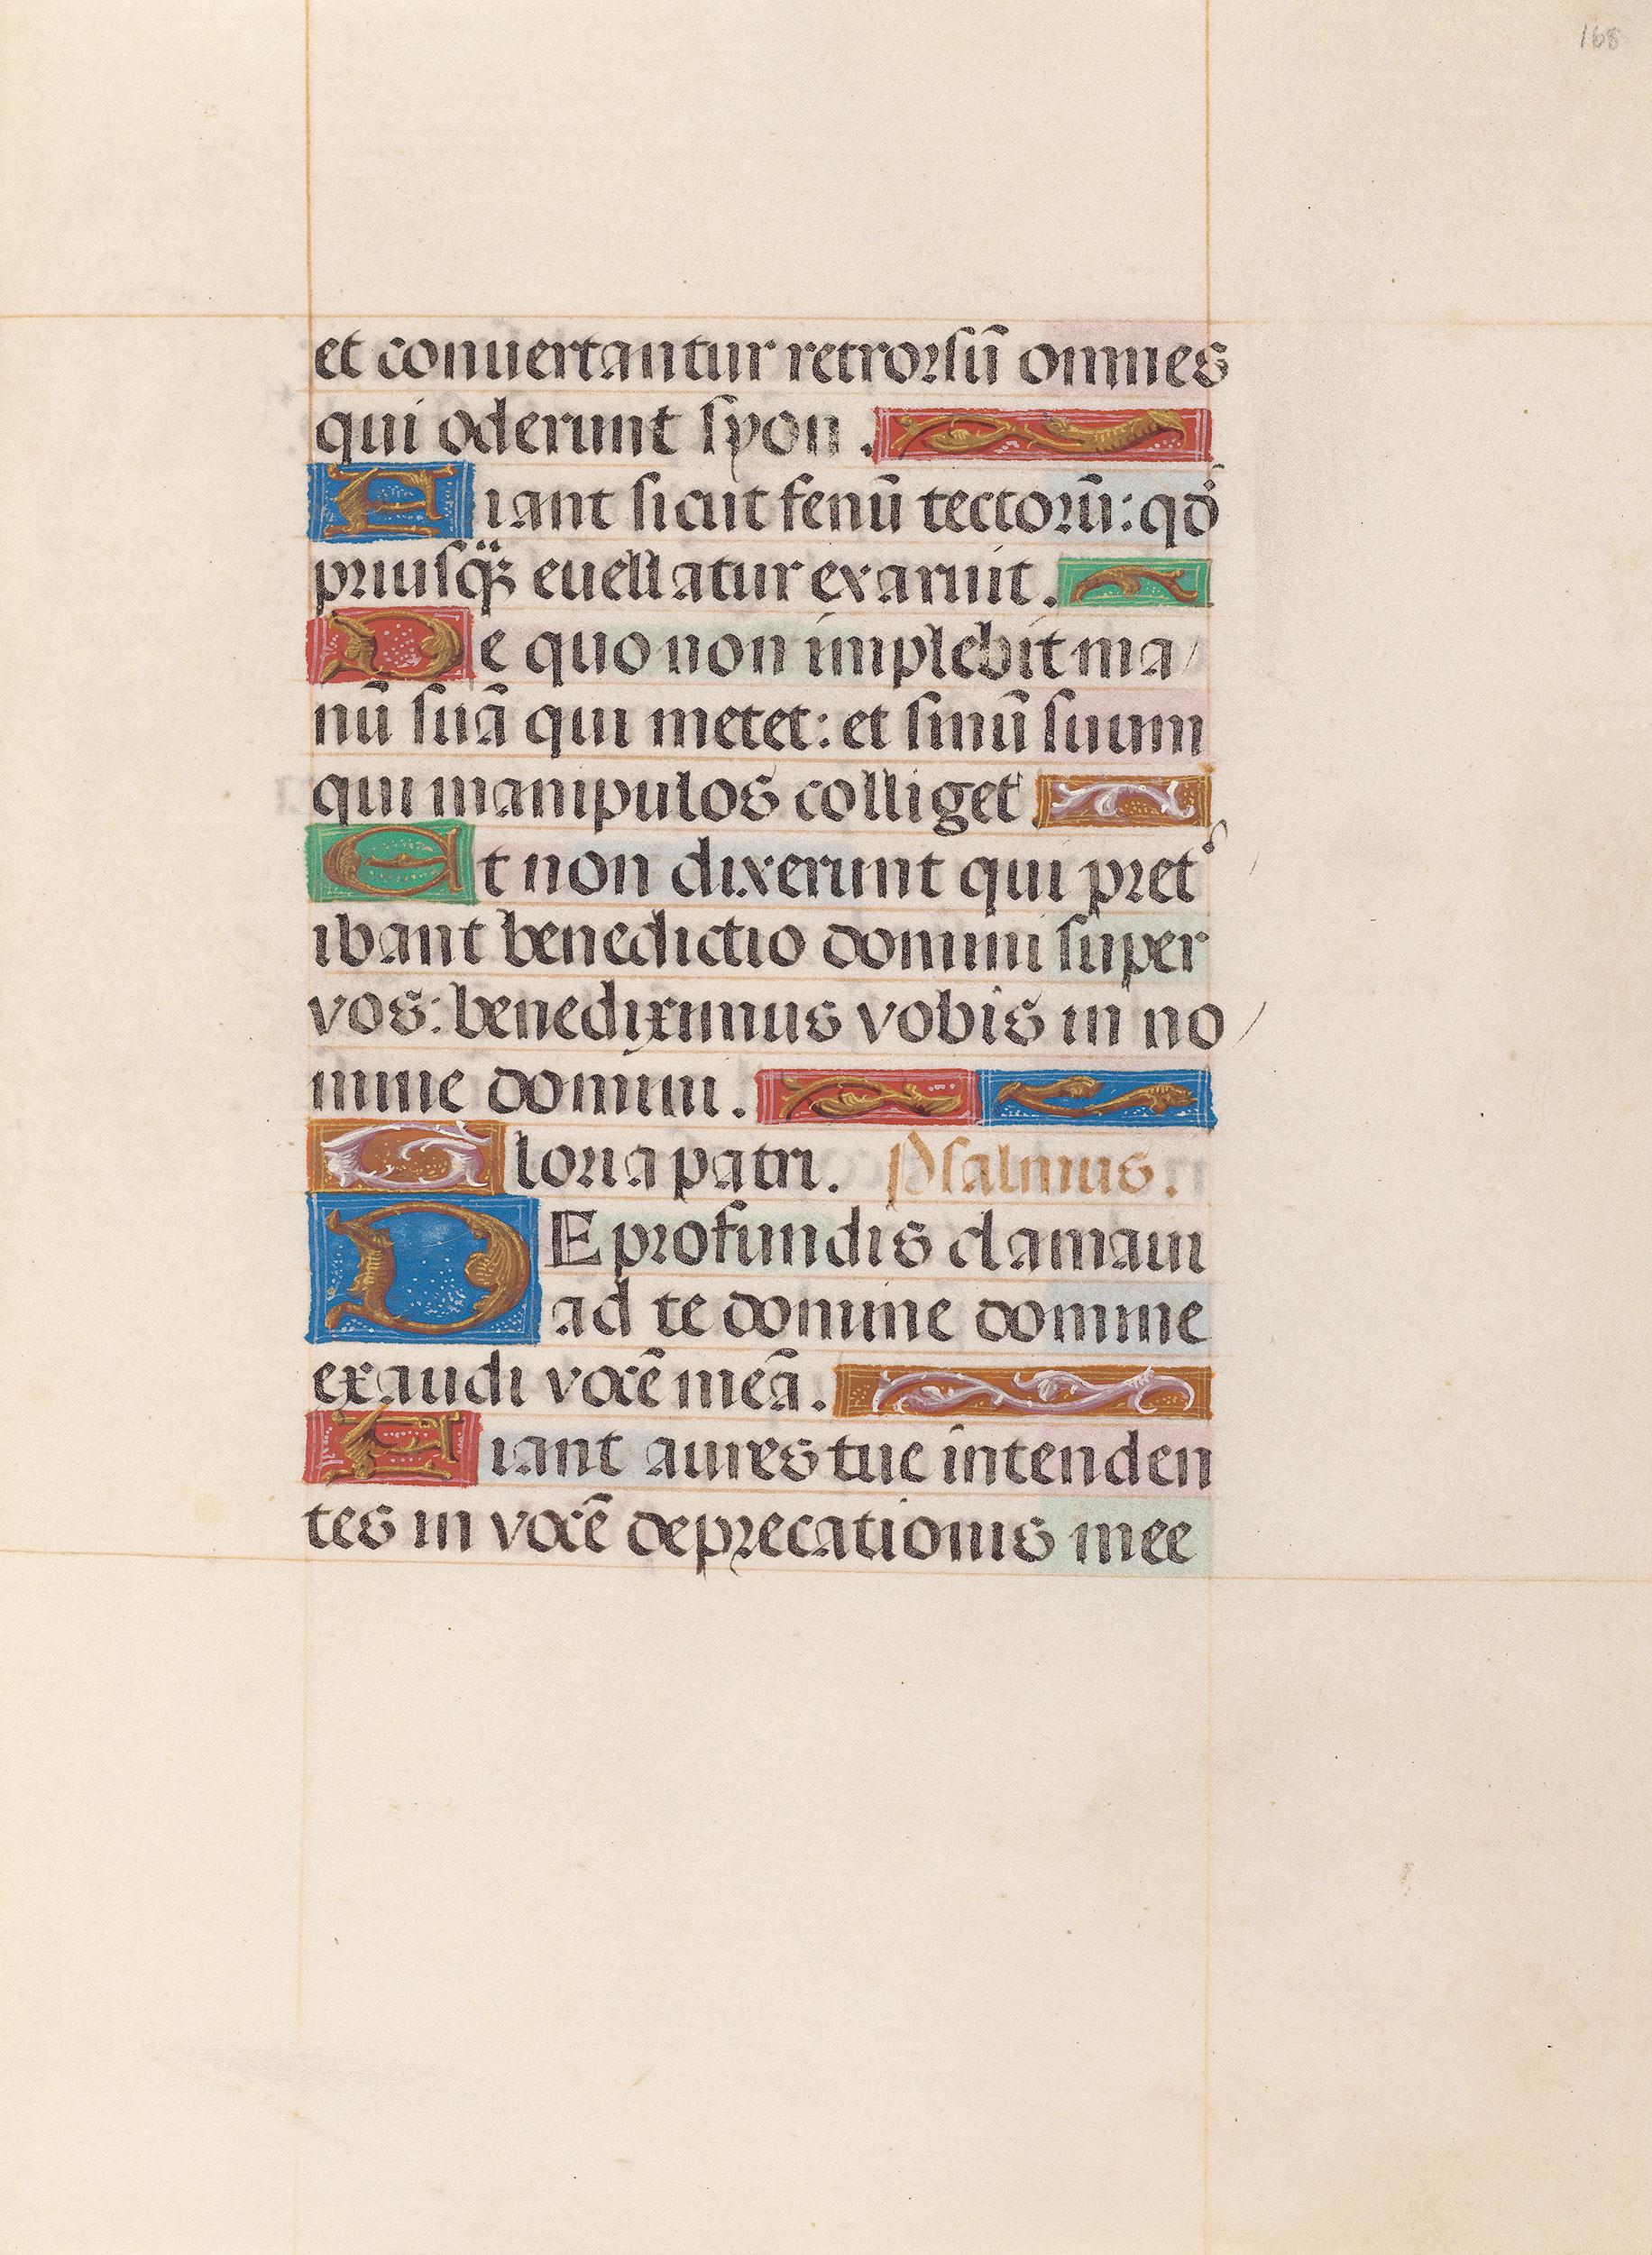 168
et conuertantur retrorsū omnes
qui oderunt syon.
Fiant sicut fenū tectorū: qđ
priusq̃ȝ euellatur exaruit.
De quo non implebit ma/
nū suā qui metet: et sinū suum
qui manipulos colliget
Et non dixerunt qui pret᾽
ibant benedictio domini super
vos: benediximus vobis in no/
mine domini.
Gloria patri. Psalmus.
DE profundis clamaui
ad te domine domine
exaudi vocē meā.
Fiant aures tue intenden
tes in vocē deprecationis mee